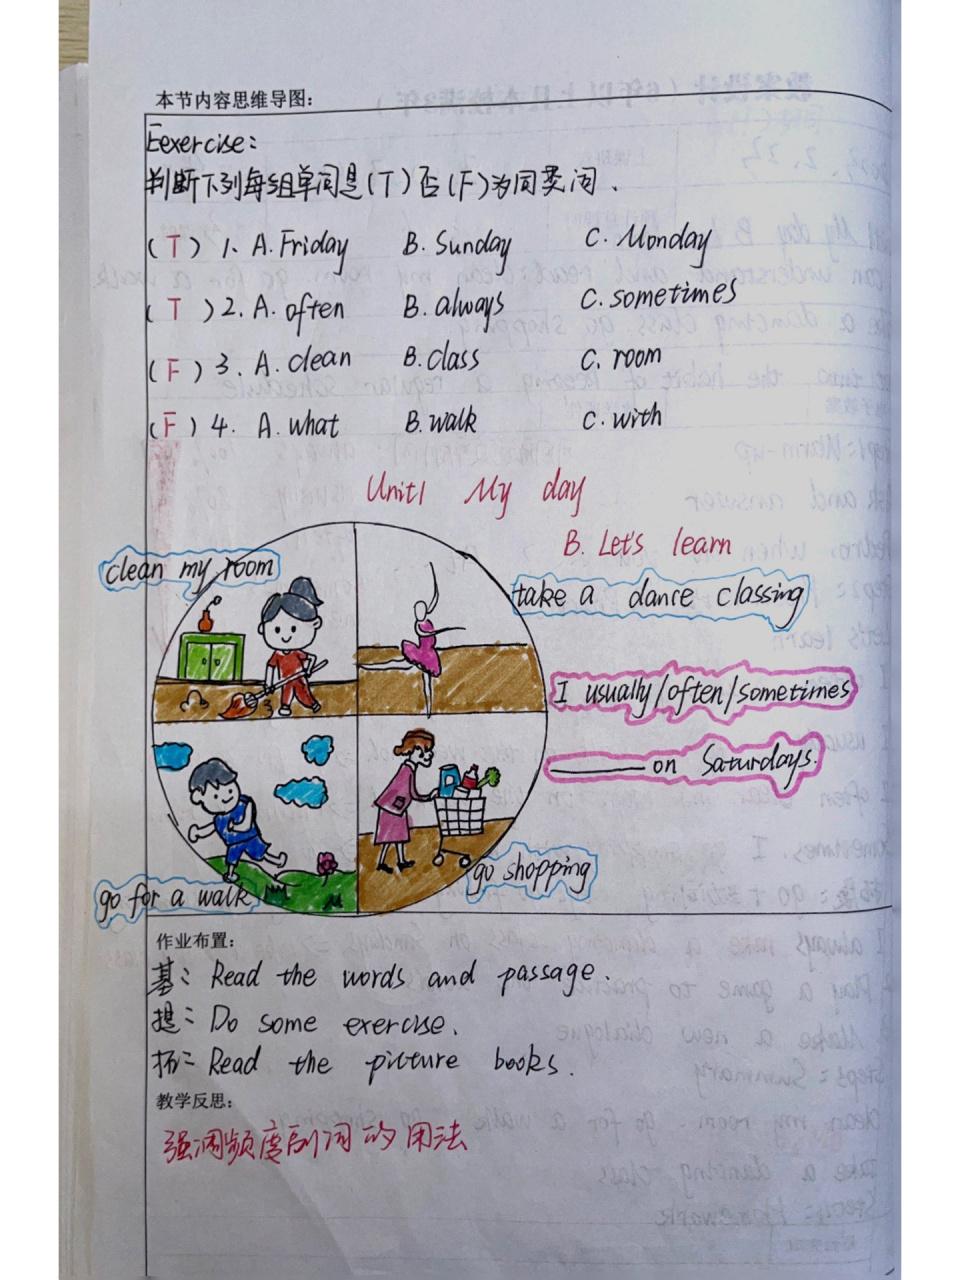 本节内容思维导图:
Eexercise:
判断下列每组单词是(T)否(F)为同类词.
(T) 1. A. Friday B. Sunday C. Monday
(T) 2. A. often B. always C. sometimes
(F) 3. A. clean B. class C. room
(F) 4. A. what B. walk C. with
Unit1 My day
B. Let's learn
clean my room
take a dance classing
I usually/often/sometimes
on Saturdays.
go for a walk
go shopping
作业布置:
基: Read the words and passage.
提: Do some exercise.
拓: Read the picture books.
教学反思:
强调频度副词的用法